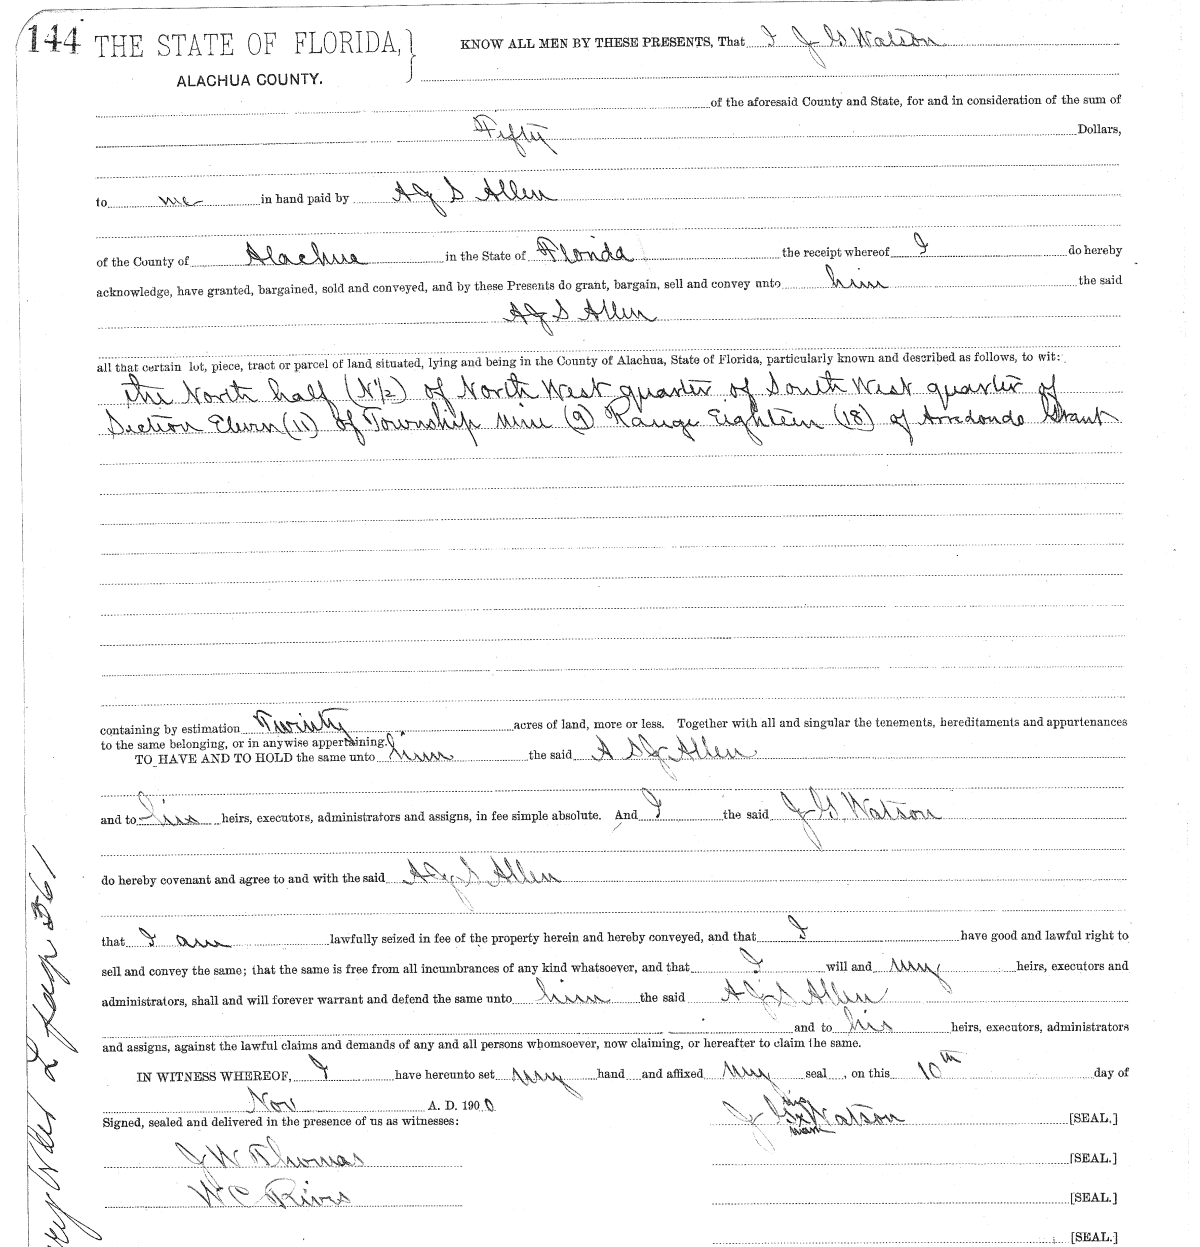 144 THE STATE OF FLORIDA, } KNOW ALL MEN BY THESE PRESENTS, That I J G Watson
ALACHUA COUNTY.
of the aforesaid County and State, for and in consideration of the sum of
Fifty Dollars,
to me in hand paid by A J S Allen
of the County of Alachua in the State of Florida the receipt whereof I do hereby
acknowledge, have granted, bargained, sold and conveyed, and by these Presents do grant, bargain, sell and convey unto him the said
A J S Allen
all that certain lot, piece, tract or parcel of land situated, lying and being in the County of Alachua, State of Florida, particularly known and described as follows, to wit:
the North half (N½) of North West quarter of South West quarter of
Section Eleven (11) of Township nine (9) Range Eighteen (18) of Arredondo Grant
containing by estimation Twinty acres of land, more or less. Together with all and singular the tenements, hereditaments and appurtenances
to the same belonging, or in anywise appertaining.
TO HAVE AND TO HOLD the same unto him the said A S J Allen
and to his heirs, executors, administrators and assigns, in fee simple absolute. And I the said J G Watson
do hereby covenant and agree to and with the said A J S Allen
that I am lawfully seized in fee of the property herein and hereby conveyed, and that I have good and lawful right to
sell and convey the same; that the same is free from all incumbrances of any kind whatsoever, and that I will and my heirs, executors and
administrators, shall and will forever warrant and defend the same unto him the said A J S Allen
and to his heirs, executors, administrators
and assigns, against the lawful claims and demands of any and all persons whomsoever, now claiming, or hereafter to claim the same.
IN WITNESS WHEREOF, I have hereunto set my hand and affixed my seal, on this 10th day of
Nov A. D. 1900
Signed, sealed and delivered in the presence of us as witnesses: J G his x mark Watson [SEAL.]
J W Thomas [SEAL.]
W C Rivers [SEAL.]
[SEAL.]
361